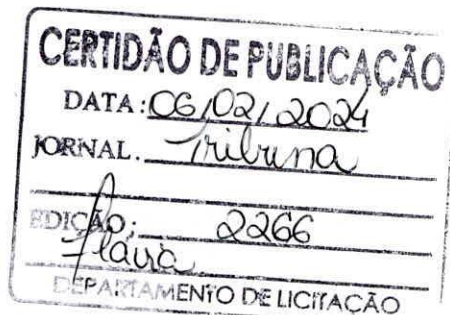 CERTIDÃO DE PUBLICAÇÃO
DATA: 06/02/2024
JORNAL. Tribuna
EDIÇÃO: 2266
Flávia
DEPARTAMENTO DE LICITAÇÃO